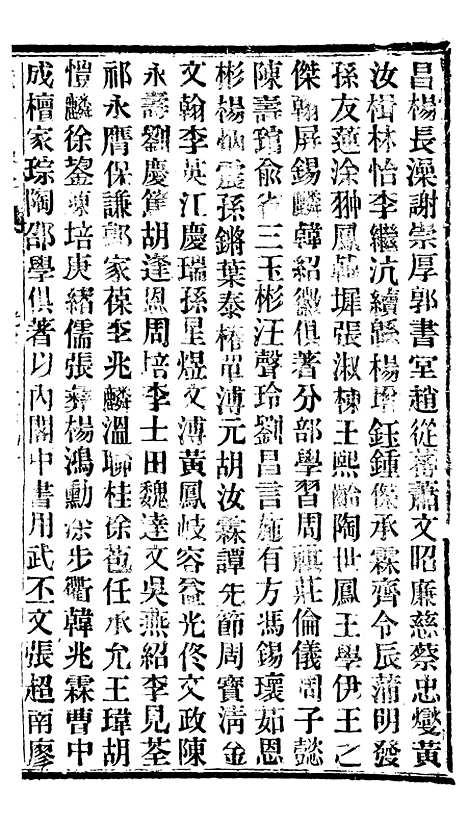 昌楊長澡謝崇厚郭書堂趙從蕃蕭文昭廉慈蔡忠燮黃
汝楫林怡李繼沆續緜楊增鈺鍾傑承霖齊令辰蒲明發
孫友蓮涂翀鳳韓墀張淑棟王熙齡陶世鳳王學伊王之
傑翰屏錫麟韓紹徽俱著分部學習周麒莊倫儀周子懿
陳壽琯俞省三玉彬汪聲玲劉昌言施有方馮錫瓌茹恩
彬楊炳震孫鏘葉泰椿單溥元胡汝霖譚先節周寶清金
文翰李英江慶瑞孫星煜文溥黃鳳岐容益光佟文政陳
永壽劉慶篤胡逢恩周培李士田魏達文吳燕紹李見荃
祁永膺保謙郭家葆李兆麟溫聯桂徐苞任承允王瑋胡
愷麟徐鋆陳培庚緒儒張彝楊鴻勳余步衢韓兆霖曹中
成檀家琮陶邵學俱著以內閣中書用武丕文張超南廖